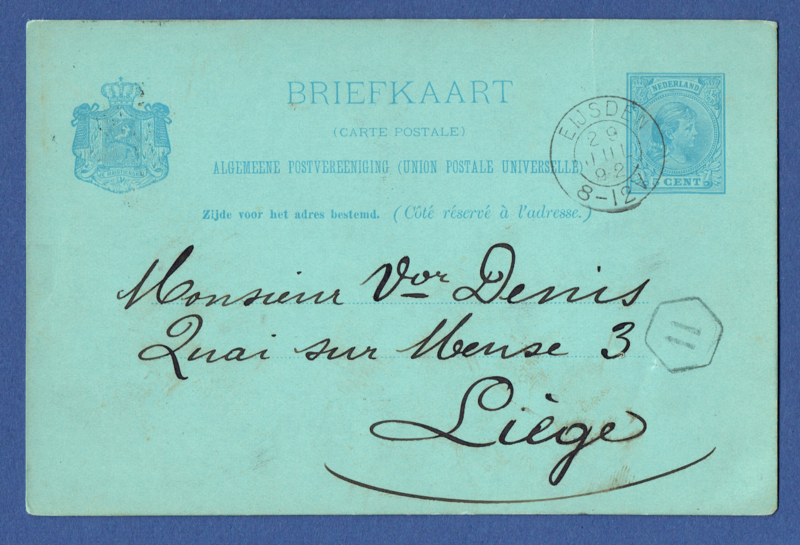 BRIEFKAART
(CARTE POSTALE)
ALGEMEENE POSTVEREENIGING (UNION POSTALE UNIVERSELLE)
Zijde voor het adres bestemd. (Côté réservé à l'adresse.)
NEDERLAND
5 CENT
EIJSDEN
29
JUL
92
8-12V
Monsieur Vor Denis
Quai sur Meuse 3
Liège
11